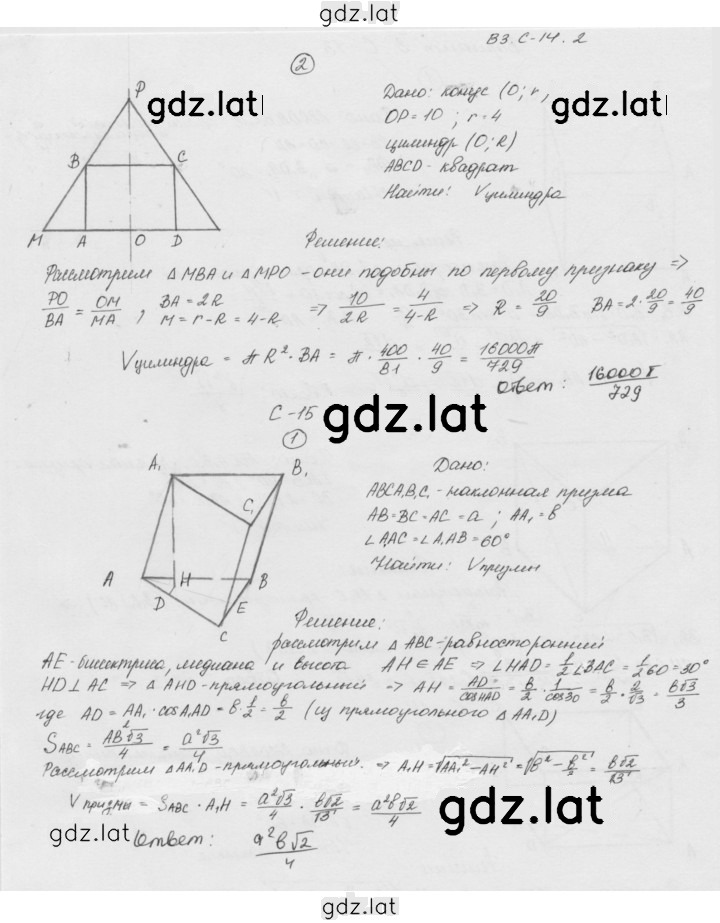 gdz.latl
В3.С-14.2
2
P
B
C
M
A
O
D
gdz.latl
Дано: конус (O; r,
OP=10 ; r=4
цилиндр (O; R)
ABCD - квадрат
Найти: Vцилиндра
Решение:
Рассмотрим △MBA и △MPO - они подобны по первому признаку ⇒
PO/BA = OM/MA ; BA = 2R
M = r-R = 4-R ⇒ 10/2R = 4/4-R ⇒ R = 20/9 BA = 2·20/9 = 40/9
Vцилиндра = πR²·BA = π·400/81·40/9 = 16000π/729
Ответ: 16000π/729
gdz.latl
С-15
1
A₁
B₁
C₁
A
H
B
D
E
C
Дано:
ABCA₁B₁C₁ - наклонная призма
AB=BC=AC=a ; AA₁=в
∠A₁AC=∠A₁AB=60°
Найти: Vпризмы
Решение:
рассмотрим △ABC - равносторонний
AE - биссектриса, медиана и высота AH∈AE ⇒ ∠HAD = 1/2∠BAC = 1/2 60=30°
HD⊥AC ⇒ △AHD - прямоугольный ⇒ AH = AD/cosHAD = в/2·1/cos30 = в/2·2/√3 = в√3/3
где AD = AA₁·cosA₁AD = в·1/2 = в/2 (из прямоугольного △AA₁D)
S ABC = AB²√3/4 = a²√3/4
Рассмотрим △AA₁D - прямоугольный. ⇒ A₁H = √AA₁²-AH² = √в²-в²/2 = в√2/√3
Vпризмы = S ABC·A₁H = a²√3/4 · в√2/√3 = a²в√2/4
gdz.latl
gdz.latl
Ответ: a²в√2/4
gdz.latl